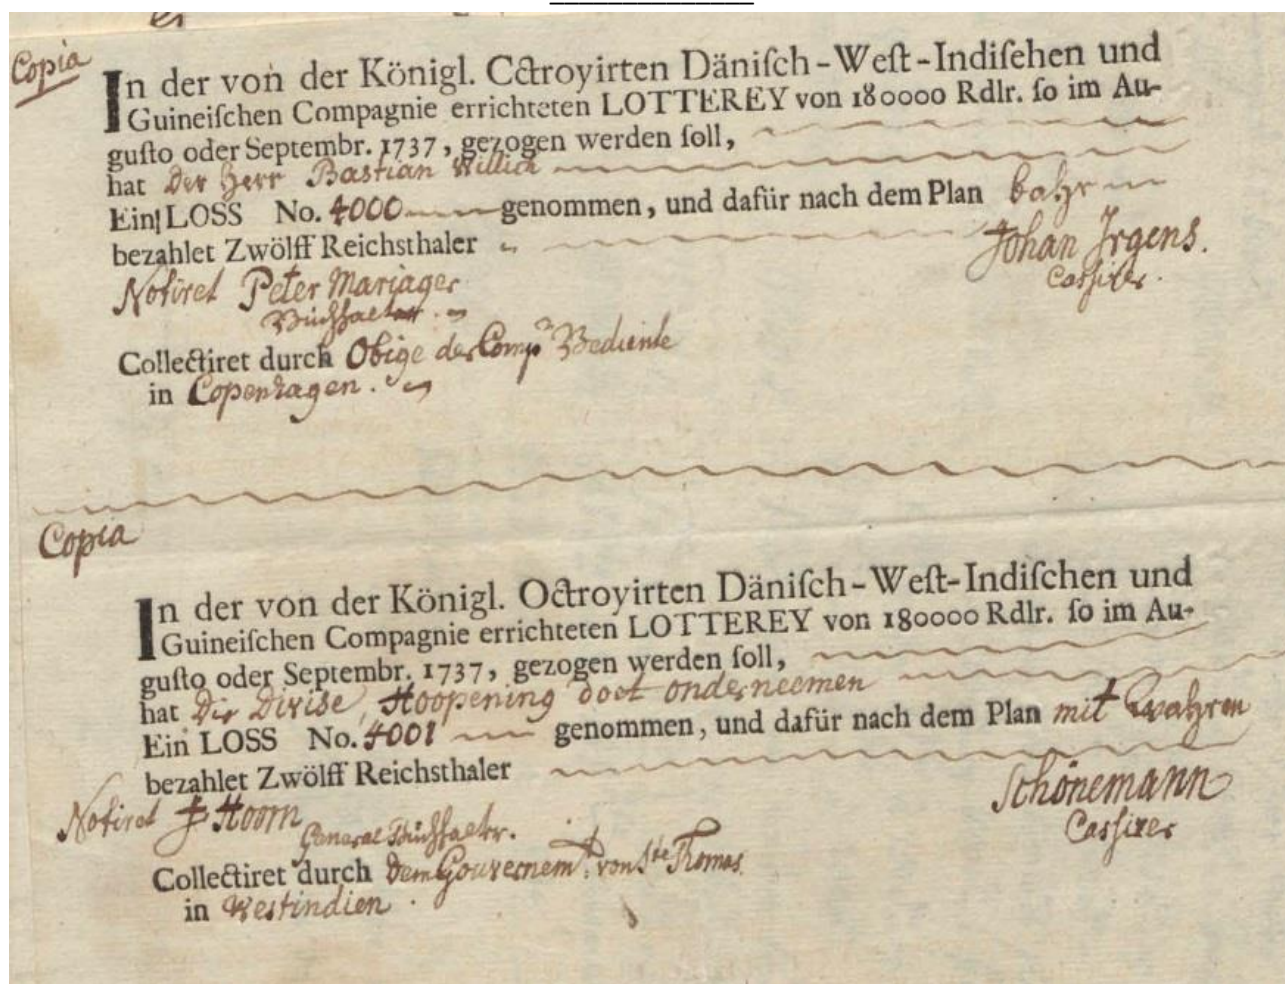 Copia
In der von der Königl. Cctroyirten Däniſch-Weſt-Indiſehen und
Guineiſchen Compagnie errichteten LOTTEREY von 180000 Rdlr. ſo im Au-
guſto oder Septembr. 1737, gezogen werden ſoll,
hat Der Herr Bastian Willich
Ein LOSS No. 4000 genommen, und dafür nach dem Plan bahr
bezahlet Zwölff Reichsthaler
Johan Jrgens.
Cassirer.
Notiret Peter Mariager
Buchhalter.
Collectiret durch Obige der Comp. Bediente
in Copenhagen.
Copia
In der von der Königl. Octroyirten Däniſch-Weſt-Indiſchen und
Guineiſchen Compagnie errichteten LOTTEREY von 180000 Rdlr. ſo im Au-
guſto oder Septembr. 1737, gezogen werden ſoll,
hat Die Divise, Hoopening doet onderneemen
Ein LOSS No. 4001 genommen, und dafür nach dem Plan mit Wahren
bezahlet Zwölff Reichsthaler
Schönemann
Cassirer
Notiret J Hoorn
General Buchhalter.
Collectiret durch Dem Gouvernemt. von Ste Thomas.
in Westindien.